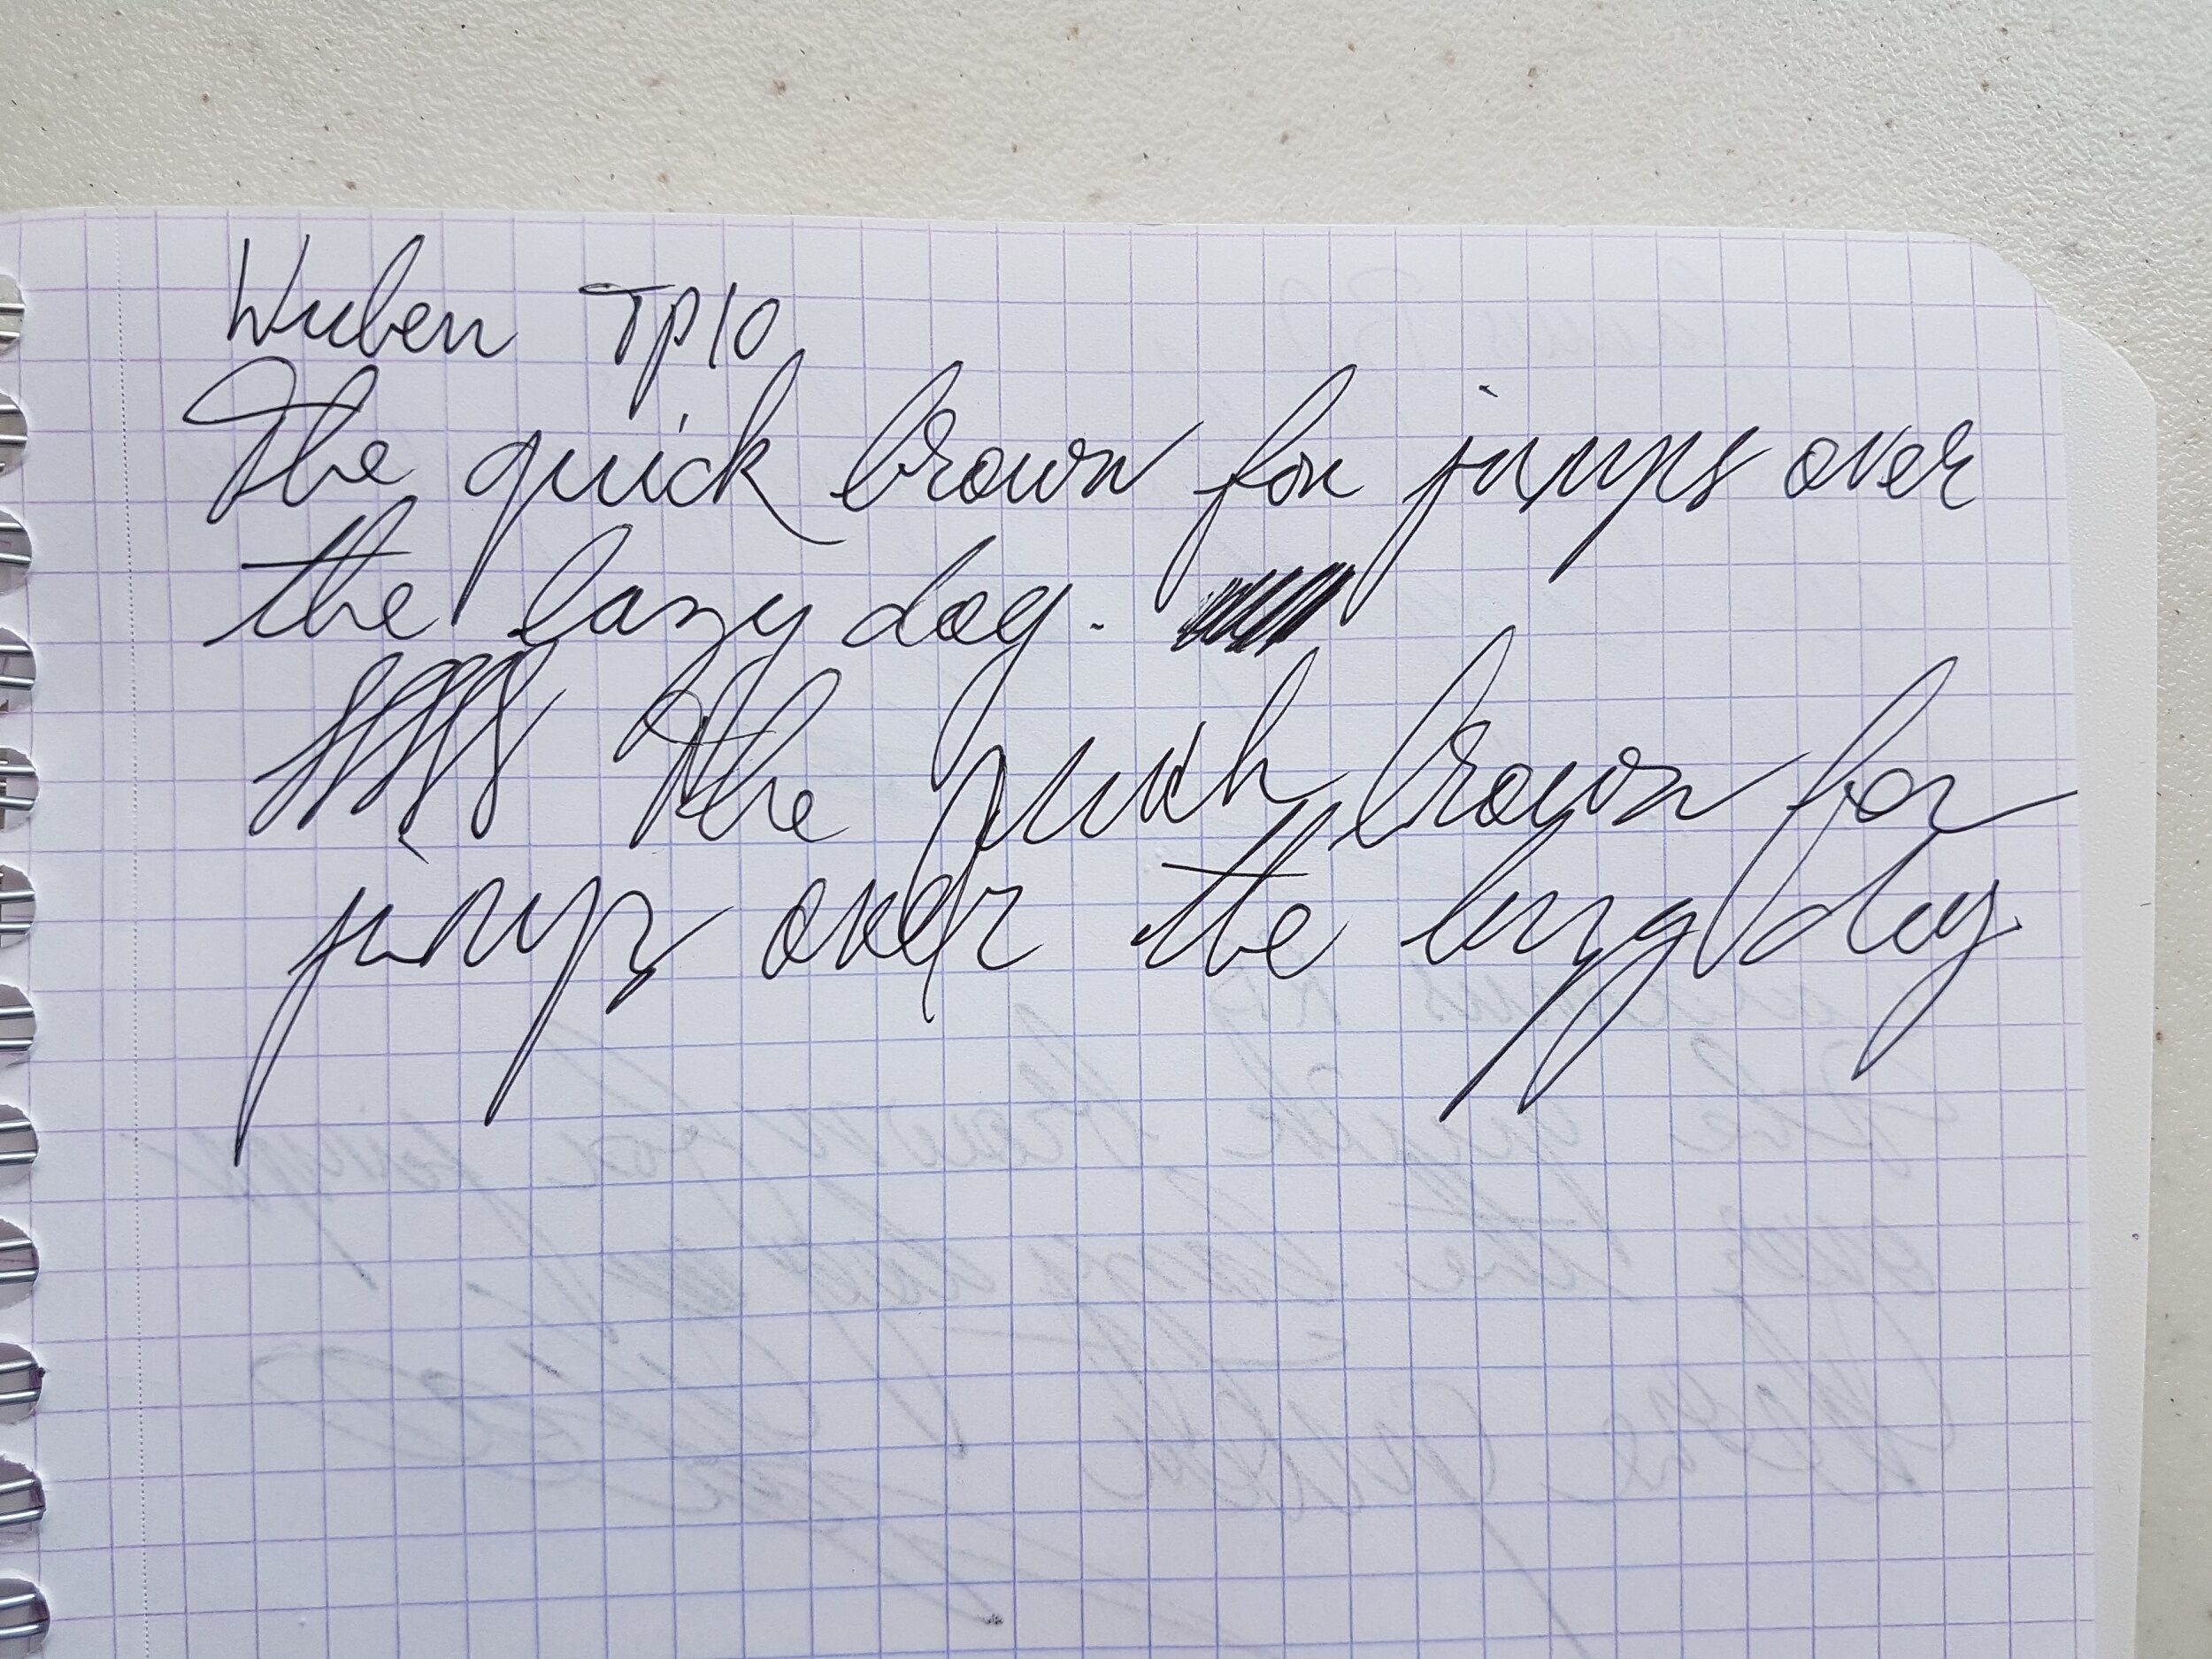 Wuben TP10
The quick brown fox jumps over
the lazy dog.
The quick brown fox
jumps over the lazy dog.